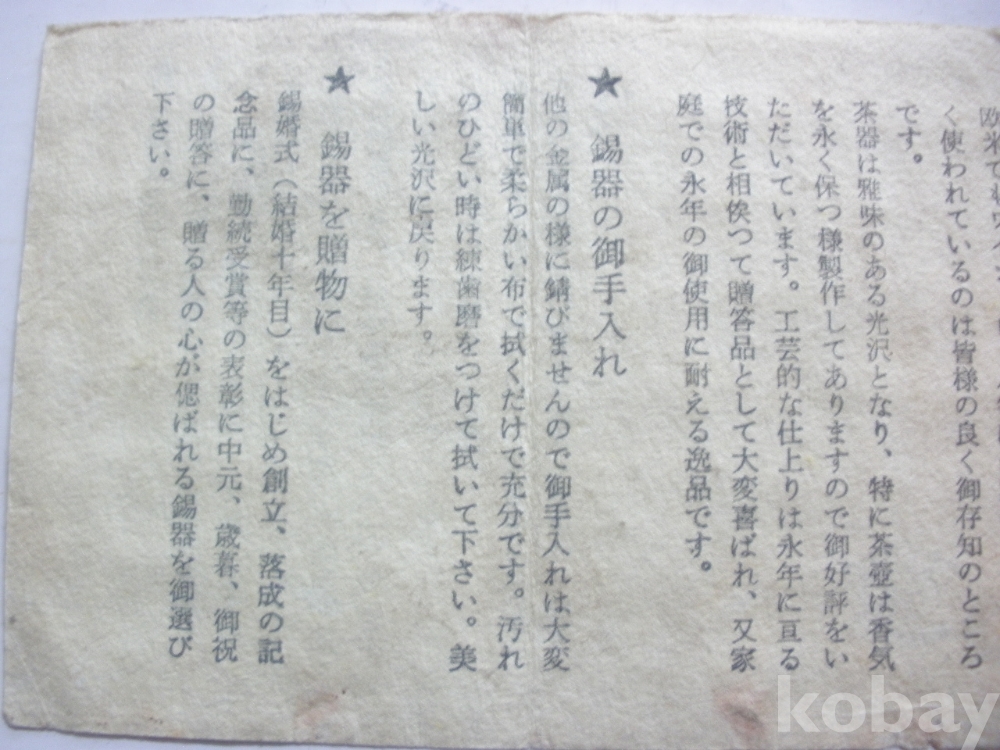 く使われているのは皆様の良く御存知のところ
です。
茶器は雅味のある光沢となり、特に茶壷は香気
を永く保つ様製作してありますので御好評をい
ただいています。工芸的な仕上りは永年に亘る
技術と相俟つて贈答品として大変喜ばれ、又家
庭での永年の御使用に耐える逸品です。
★ 錫器の御手入れ
他の金属の様に錆びませんので御手入れは大変
簡単で柔らかい布で拭くだけで充分です。汚れ
のひどい時は練歯磨をつけて拭いて下さい。美
しい光沢に戻ります。
★ 錫器を贈物に
錫婚式（結婚十年目）をはじめ創立、落成の記
念品に、勤続受賞等の表彰に中元、歳暮、御祝
の贈答に、贈る人の心が偲ばれる錫器を御選び
下さい。
kobay